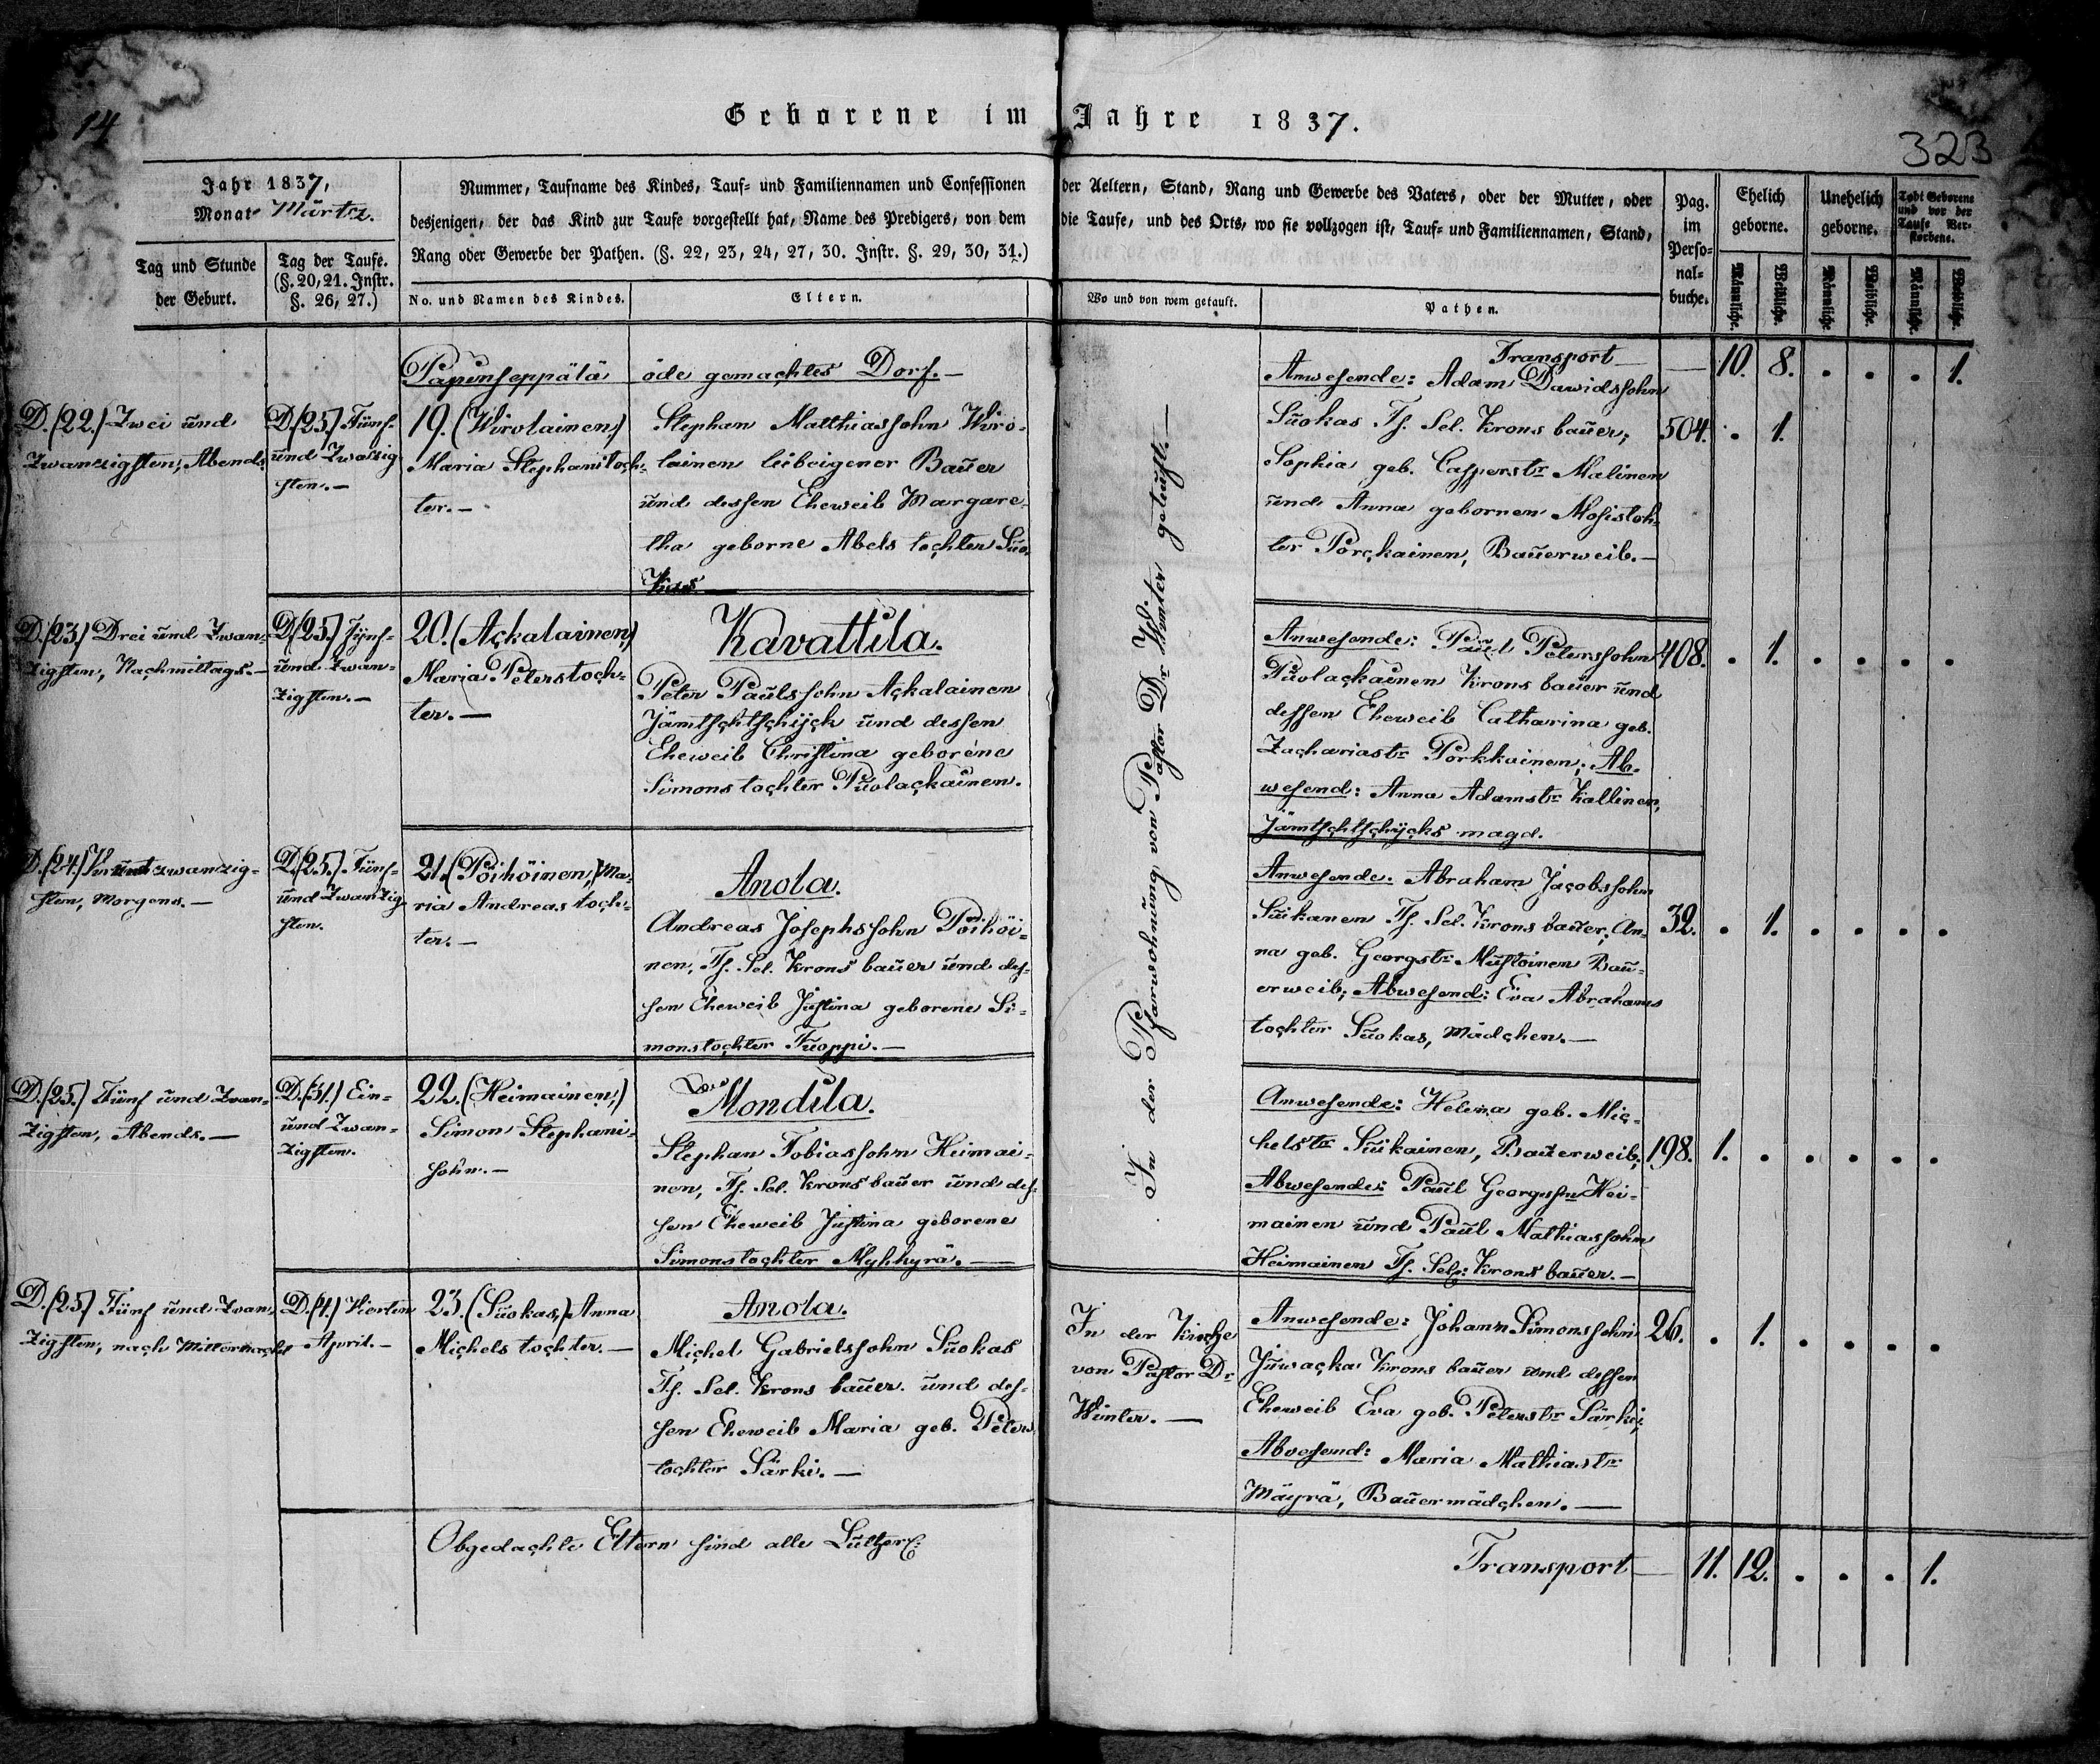 14
Geborene im Jahre 1837.
323
Jahr 1837,
Monat Märtz.
Tag und Stunde
der Geburt.
Tag der Taufe.
(§. 20, 21. Instr.
§. 26, 27.)
Nummer, Taufname des Kindes, Tauf= und Familiennamen und Confessionen
desjenigen, der das Kind zur Taufe vorgestellt hat, Name des Predigers, von dem
Rang oder Gewerbe der Pathen. (§. 22, 23, 24, 27, 30. Instr. §. 29, 30, 31.)
No. und Namen des Kindes.
Eltern.
der Aeltern, Stand, Rang und Gewerbe des Vaters, oder der Mutter, oder
die Taufe, und des Orts, wo sie vollzogen ist, Tauf= und Familiennamen, Stand,
Wo und von wem getauft.
Pathen.
Pag.
im
Perso=
nal=
buche.
Ehelich
geborne.
Unehelich
geborne.
Todt Geborene
und vor der
Taufe Ver=
storbene.
Männliche.
Weibliche.
Männliche.
Weibliche.
Männliche.
Weibliche.
Transport — 10. 8. . . . 1.
Papenseppälä öde gemachtes Dorf. —
D. (22.) Zwei und
Zwanzigsten, Abends
D. (25.) Fünf=
und Zwanzig
sten. —
19. (Wirolainen,)
Maria Stephanitoch=
ter. —
Stephan Matthiassohn Wiro=
lainen leibeigener Bauer
und dessen Eheweib Margare=
tha geborne Abels tochter Suo=
kas —
In der Pfarwohnung von Pastor Dr Winter getauft. —
Anwesende: Adam Davidssohn
Suokas Ts. Sel. Krons bauer,
Sophia geb. Casperstr Malinen
und Anna gebornen Mosistoh=
ter Porckainen, Bauerweib. —
504. . 1.
D. (23.) Drei und Zwan=
zigsten, Nachmittags. —
D. (25.) Fünf=
und Zwan=
zigsten. —
20. (Ackalainen,)
Maria Peterstoch=
ter. —
Kavattila.
Peter Paulssohn Ackalainen
Jämtschtschijck und dessen
Eheweib Christina geborene
Simons tochter Puolackainen.
Anwesende: Paul Peterssohn
Puolackainen Krons bauer und
dessen Eheweib Catharina geb.
Zachariastr Porkkainen; Ab=
wesend: Anna Adamstr Kallinen,
Jämtschtschijcks magd.
408. . 1. . . . .
D. (24.) zwanzig=
sten, Morgens. —
D. (25.) Fünf=
und Zwanzig
sten.
21. (Pöihöinen,) Ma=
ria Andreas toch=
ter. —
Anola.
Andreas Josephssohn Pöihöi=
nen, Ts. Sel. Krons bauer und des=
sen Eheweib Justina geborene Si=
monstochter Tuoppi. —
Anwesende. Abraham Jacobssohn
Suikanen Ts. Sel. Krons bauer; An=
na geb. Georgstr Mustoinen Bau=
erweib; Abwesend: Eva Abrahams
tochter Suokas, Mädchen. —
32. . 1. . . . .
D. (25.) Fünf und Zwan=
zigsten, Abends. —
D. (31.) Ein=
und Zwan=
zigsten.
22. (Heimainen,)
Simon Stephani=
sohn. —
Mondila.
Stephan Tobiassohn Heimai=
nen, Ts. Sel. Krons bauer und des=
sen Eheweib Justina geborene
Simonstochter Myhkyrä. —
Anwesende: Helena geb. Mic=
helstr Suikainen, Bauerweib;
Abwesende: Paul Georgssn Hei=
mainen und Paul Mathiassohn
Heimainen Ts. Sel: Krons bauer. —
198. 1. . . . . .
D. (25.) Fünf und Zwan=
zigsten, nach Mitternacht
D. (4.) Vierten
April. —
23. (Suokas,) Anna
Michels tochter. —
Anola.
Michel Gabrielssohn Suokas
Ts. Sel. Krons bauer. und des=
sen Eheweib Maria geb. Peters
tochter Särki. —
In der Kirche
von Pastor Dr
Winter. —
Anwesende: Johann Simonssohn
Juwacka Krons bauer und dessen
Eheweib Eva geb. Peterstr Särki;
Abvesend: Maria Mathiastr
Mäyrä, Bauermädchen. —
26. . 1. . . . .
Obgedachte Eltern sind alle Luther:
Transport — 11. 12. . . . 1.